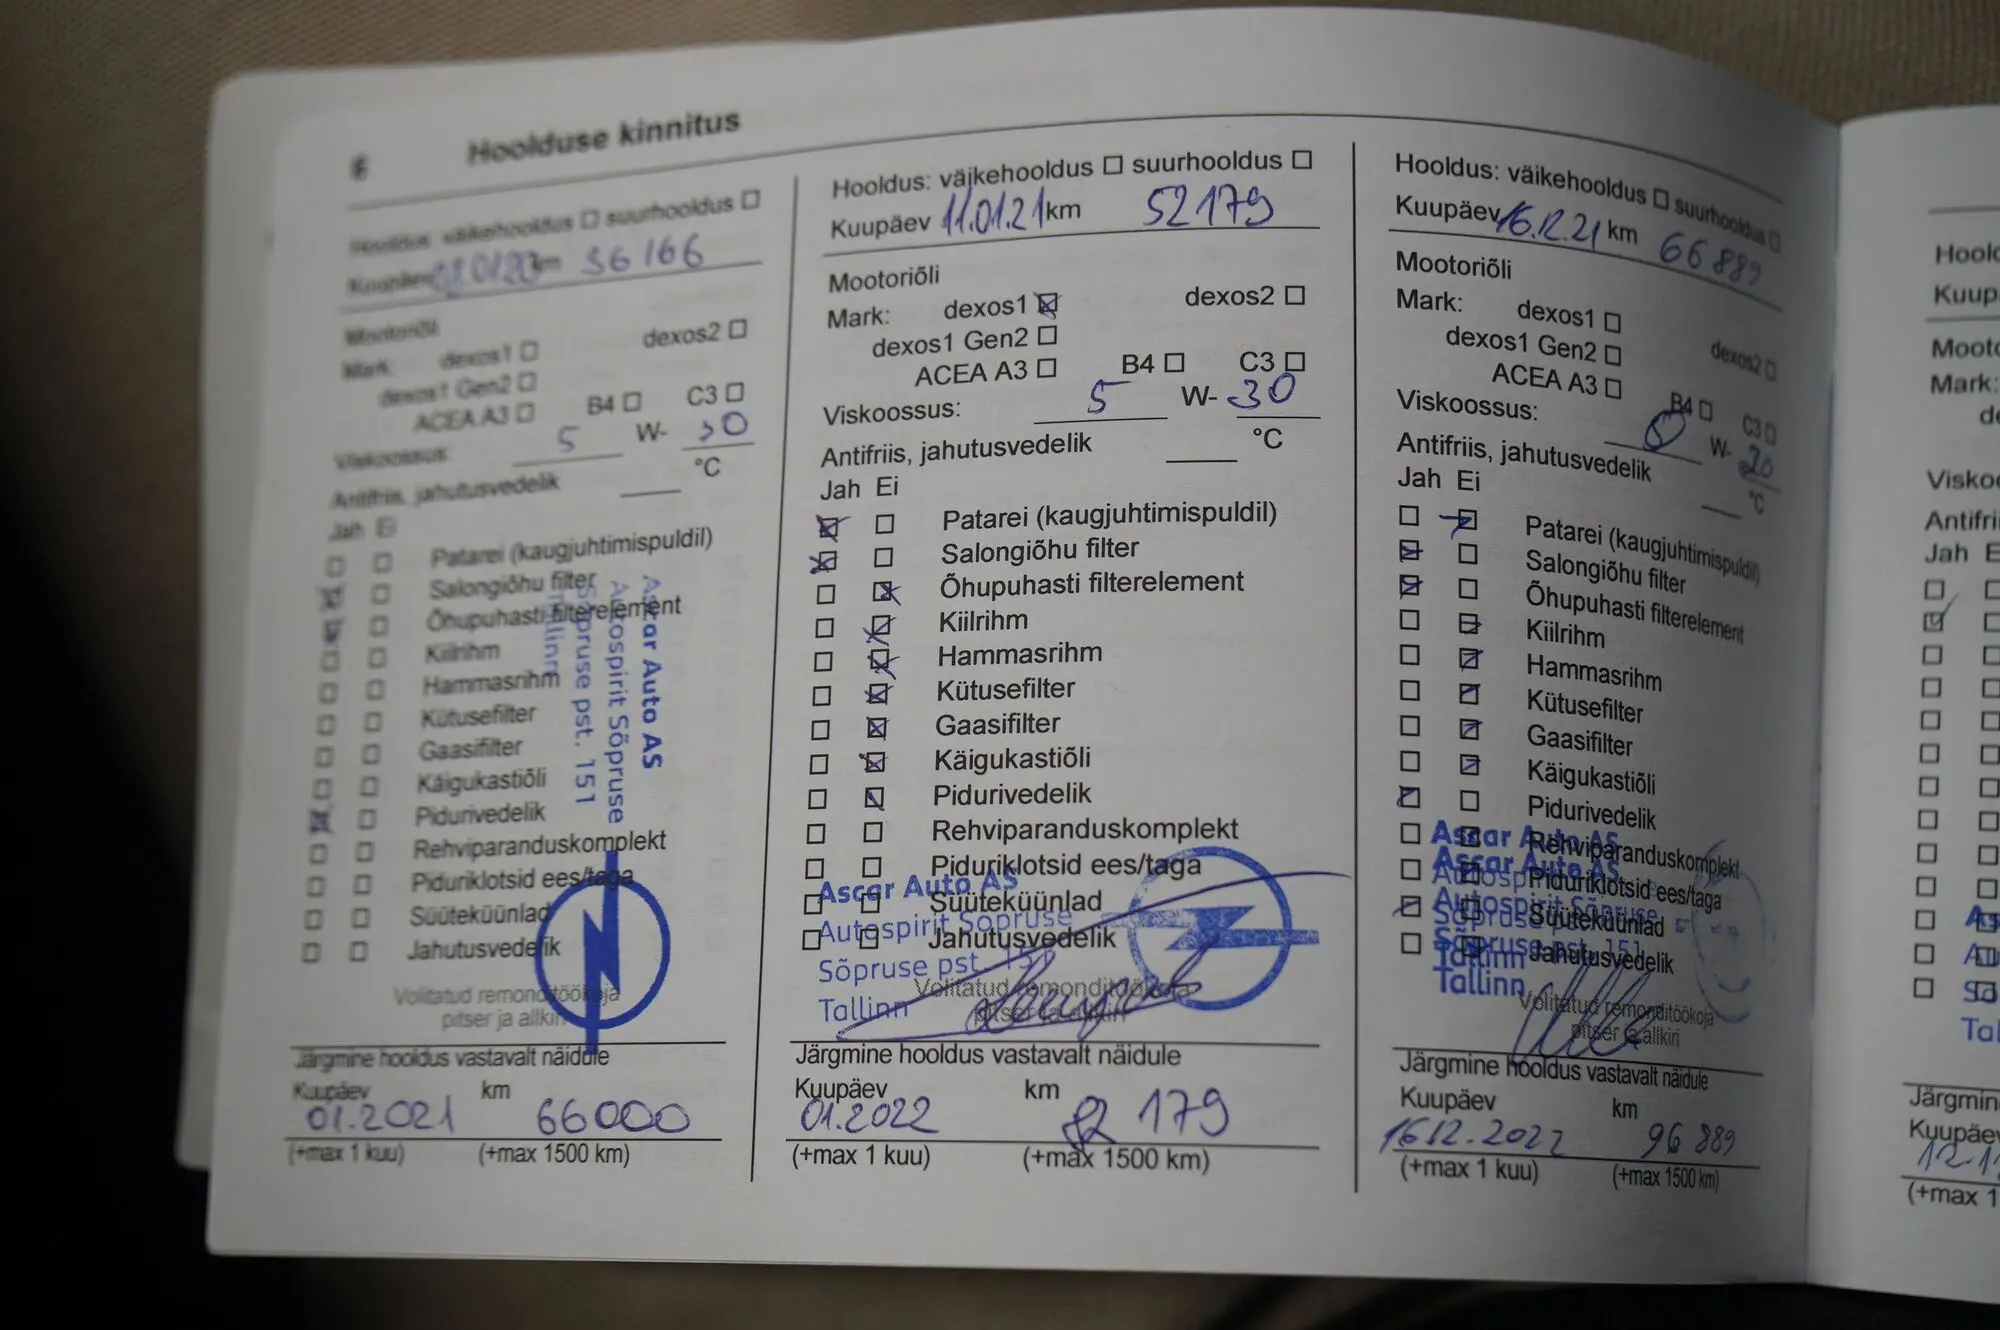 6 Hoolduse kinnitus
Hooldus: väikehooldus ☐ suurhooldus ☐
Kuupäev km 36166
Mootoriõli
Mark: dexos1 ☐ dexos2 ☐
dexos1 Gen2 ☐
ACEA A3 ☐ B4 ☐ C3 ☐
Viskoossus: 5 W- 30
Antifriis, jahutusvedelik ____ °C
Jah Ei
☐ ☐ Patarei (kaugjuhtimispuldil)
☒ ☐ Salongiõhu filter
☒ ☐ Õhupuhasti filterelement
☐ ☐ Kiilrihm
☐ ☐ Hammasrihm
☐ ☐ Kütusefilter
☐ ☐ Gaasifilter
☐ ☐ Käigukastiõli
☒ ☐ Pidurivedelik
☐ ☐ Rehviparanduskomplekt
☐ ☐ Piduriklotsid ees/taga
☐ ☐ Süüteküünlad
☐ ☐ Jahutusvedelik
Ascar Auto AS
Autospirit Sõpruse
Sõpruse pst. 151
Tallinn
Volitatud remonditöökoja
pitser ja allkiri
Järgmine hooldus vastavalt näidule
Kuupäev km
01.2021 66000
(+max 1 kuu) (+max 1500 km)
Hooldus: väikehooldus ☐ suurhooldus ☐
Kuupäev 11.01.21 km 52179
Mootoriõli
Mark: dexos1 ☒ dexos2 ☐
dexos1 Gen2 ☐
ACEA A3 ☐ B4 ☐ C3 ☐
Viskoossus: 5 W- 30
Antifriis, jahutusvedelik ____ °C
Jah Ei
☒ ☐ Patarei (kaugjuhtimispuldil)
☒ ☐ Salongiõhu filter
☐ ☒ Õhupuhasti filterelement
☐ ☒ Kiilrihm
☐ ☒ Hammasrihm
☐ ☒ Kütusefilter
☐ ☒ Gaasifilter
☐ ☒ Käigukastiõli
☐ ☒ Pidurivedelik
☐ ☐ Rehviparanduskomplekt
☐ ☐ Piduriklotsid ees/taga
☐ ☐ Süüteküünlad
☐ ☐ Jahutusvedelik
Ascar Auto AS
Autospirit Sõpruse
Sõpruse pst. 151
Tallinn
Volitatud remonditöökoja
pitser ja allkiri
Järgmine hooldus vastavalt näidule
Kuupäev km
01.2022 82 179
(+max 1 kuu) (+max 1500 km)
Hooldus: väikehooldus ☐ suurhooldus ☐
Kuupäev 16.12.21 km 66889
Mootoriõli
Mark: dexos1 ☐ dexos2 ☐
dexos1 Gen2 ☐
ACEA A3 ☐ B4 ☐ C3 ☐
Viskoossus: 0 W- 20
Antifriis, jahutusvedelik ____ °C
Jah Ei
☐ ☒ Patarei (kaugjuhtimispuldil)
☒ ☐ Salongiõhu filter
☒ ☐ Õhupuhasti filterelement
☐ ☒ Kiilrihm
☐ ☒ Hammasrihm
☐ ☒ Kütusefilter
☐ ☒ Gaasifilter
☐ ☒ Käigukastiõli
☒ ☐ Pidurivedelik
☐ ☒ Rehviparanduskomplekt
☐ ☒ Piduriklotsid ees/taga
☒ ☐ Süüteküünlad
☐ ☒ Jahutusvedelik
Ascar Auto AS
Ascar Auto AS
Autospirit Sõpruse
Sõpruse pst. 151
Tallinn
Tallinn
Volitatud remonditöökoja
pitser ja allkiri
Järgmine hooldus vastavalt näidule
Kuupäev km
16.12.2022 96 889
(+max 1 kuu) (+max 1500 km)
Hoold
Kuup
Mooto
Mark:
Viskoo
Antifrii
Jah E
Järgmin
Kuupäe
(+max 1